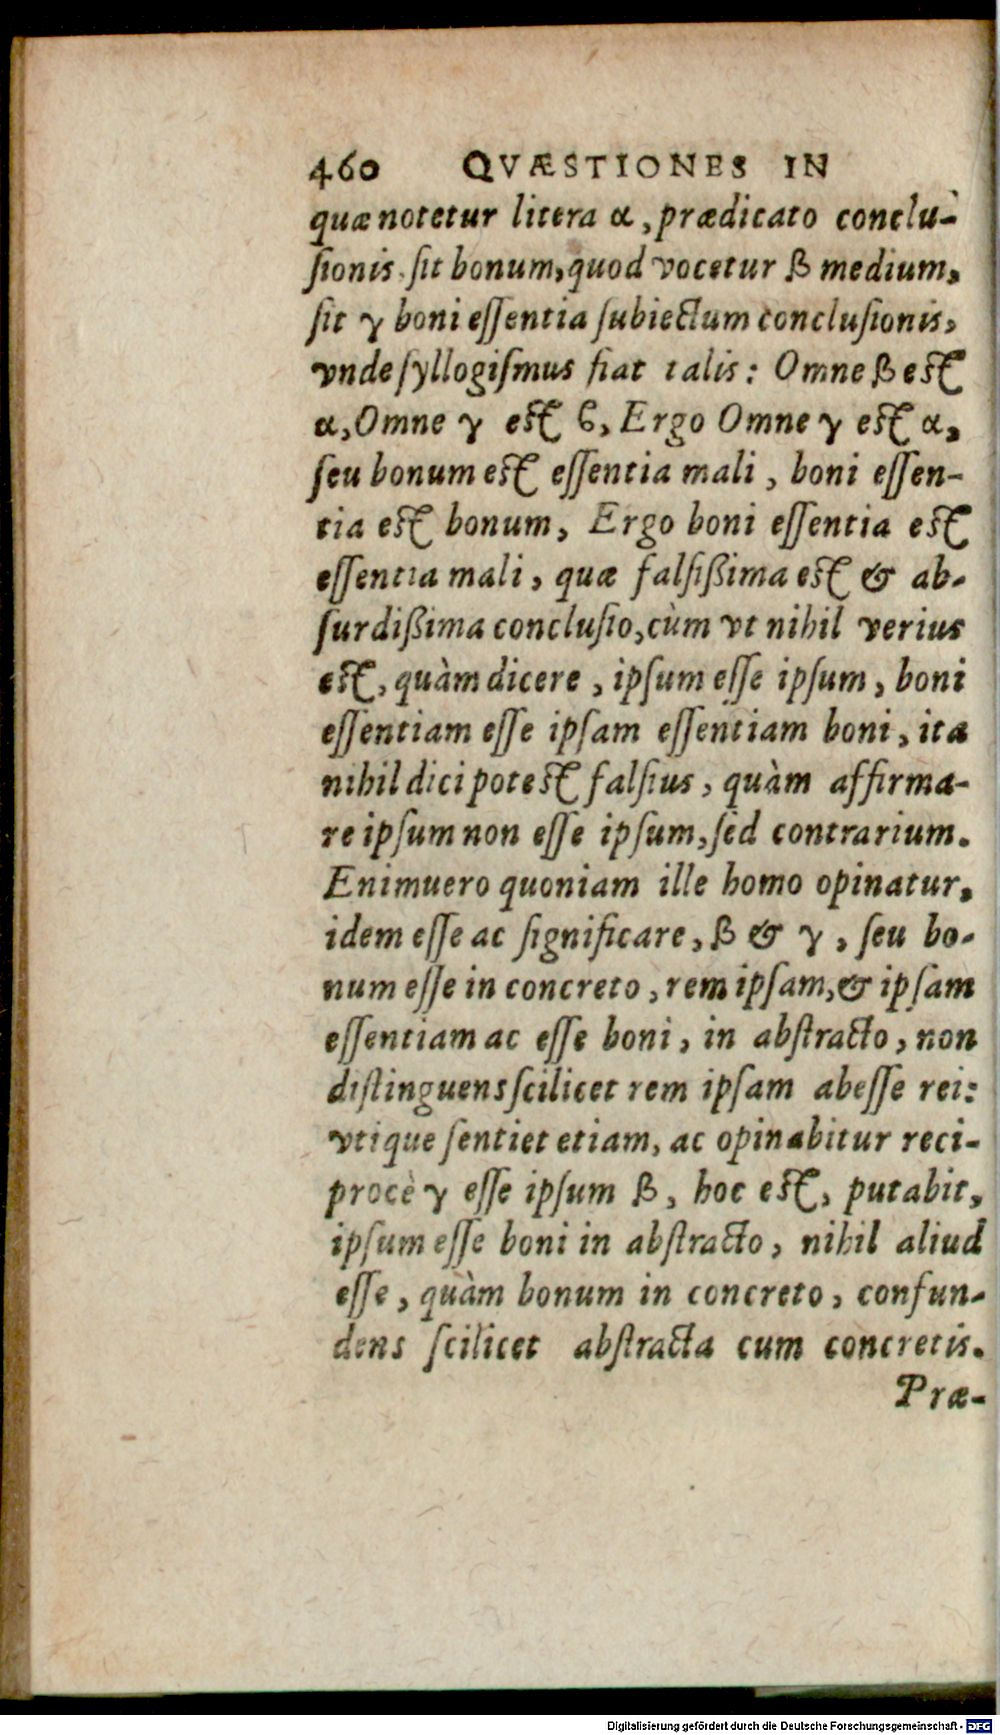 460 QVÆSTIONES IN
quæ notetur litera α, prædicato conclu-
sionis sit bonum, quod vocetur β medium,
sit γ boni eſſentia ſubiectum concluſionis,
vnde ſyllogiſmus fiat talis: Omne β eſt
α, Omne γ eſt ϐ, Ergo Omne γ eſt α,
ſeu bonum eſt eſſentia mali, boni eſſen-
tia eſt bonum, Ergo boni eſſentia eſt
eſſentia mali, quæ falſißima eſt & ab-
ſurdißima concluſio, cùm vt nihil verius
eſt, quàm dicere, ipſum eſſe ipſum, boni
eſſentiam eſſe ipſam eſſentiam boni, ita
nihil dici poteſt falſius, quàm affirma-
re ipſum non eſſe ipſum, ſed contrarium.
Enimuero quoniam ille homo opinatur,
idem eſſe ac ſignificare, β & γ, ſeu bo-
num eſſe in concreto, rem ipſam, & ipſam
eſſentiam ac eſſe boni, in abſtracto, non
diſtinguens ſcilicet rem ipſam abeſſe rei:
vtique ſentiet etiam, ac opinabitur reci-
procè γ eſſe ipſum β, hoc eſt, putabit,
ipſum eſſe boni in abſtracto, nihil aliud
eſſe, quàm bonum in concreto, confun-
dens ſcilicet abſtracta cum concretis.
Præ-
Digitalisierung gefördert durch die Deutsche Forschungsgemeinschaft - DFG